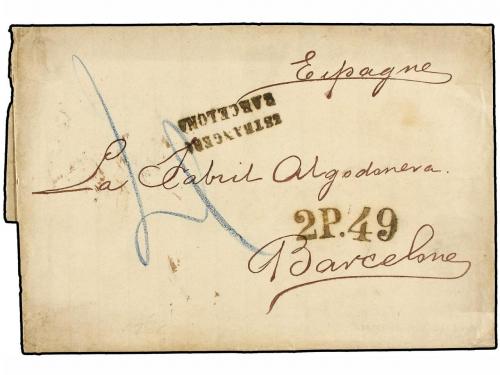 Espagne
ESTRANGERA
BARCELONA
La Fabril Algodonera.
2P.49
Barcelone